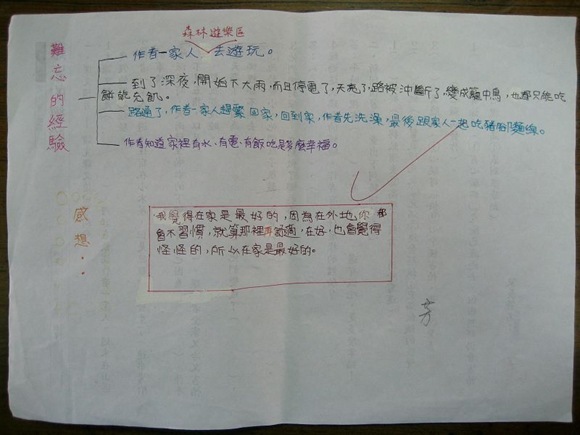 難忘的經驗
森林遊樂區
作者一家人去遊玩。
到了深夜,開始下大雨,而且停電了,天亮了,路被沖斷了,變成籠中鳥,也都只能吃
餅乾充飢。
路通了,作者一家人趕緊回家,回到家,作者先洗澡,最後跟家人一起吃豬腳麵線。
作者知道家裡有水、有電、有飯吃是多麼幸福。
感想:
我覺得在家是最好的,因為在外地,你都
會不習慣,就算那裡再舒適,在好,也會覺得
怪怪的,所以在家是最好的。
芳